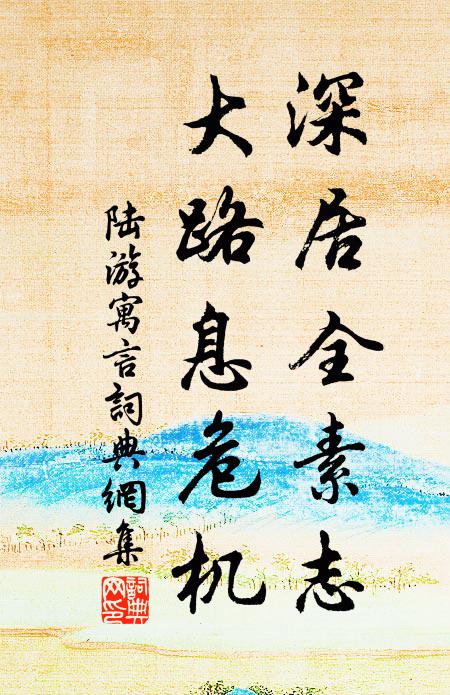 深居全素志
大路息危机
陆游寓言詞典網集
詞典網印